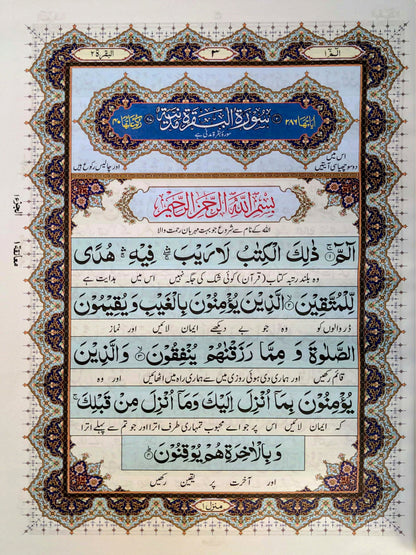 الٓمّٓ ۱
۳
البقرة ۲
اٰیاتها ۲۸۶
سُوْرَةُ الْبَقَرَةِ مَدَنِيَّةٌ
رکوعاتها ۴۰
سورۂ بقرہ مدنی ہے
اس میں
دو سو چھیاسی آیتیں
اور چالیس رکوع ہیں
بِسْمِ اللّٰهِ الرَّحْمٰنِ الرَّحِيْمِ
اللہ کے نام سے شروع جو بہت مہربان رحمت والا
الٓمّٓ ۚ ذٰلِكَ الْكِتٰبُ لَا رَيْبَ ۛ فِيْهِ ۛ هُدًى
وہ بلند رتبہ کتاب (قرآن) کوئی شک کی جگہ نہیں اس میں ہدایت ہے
لِّلْمُتَّقِيْنَ ۙ الَّذِيْنَ يُؤْمِنُوْنَ بِالْغَيْبِ وَيُقِيْمُوْنَ
ڈر والوں کو وہ جو بے دیکھے ایمان لائیں اور نماز
الصَّلٰوةَ وَ مِمَّا رَزَقْنٰهُمْ يُنْفِقُوْنَ ۙ وَالَّذِيْنَ
قائم رکھیں اور ہماری دی ہوئی روزی میں سے ہماری راہ میں اٹھائیں اور وہ
يُؤْمِنُوْنَ بِمَآ اُنْزِلَ اِلَيْكَ وَمَآ اُنْزِلَ مِنْ قَبْلِكَ ۚ
کہ ایمان لائیں اس پر جو اے محبوب تمہاری طرف اترا اور جو تم سے پہلے اترا
وَبِالْاٰخِرَةِ هُمْ يُوْقِنُوْنَ
اور آخرت پر یقین رکھیں
منزل ۱